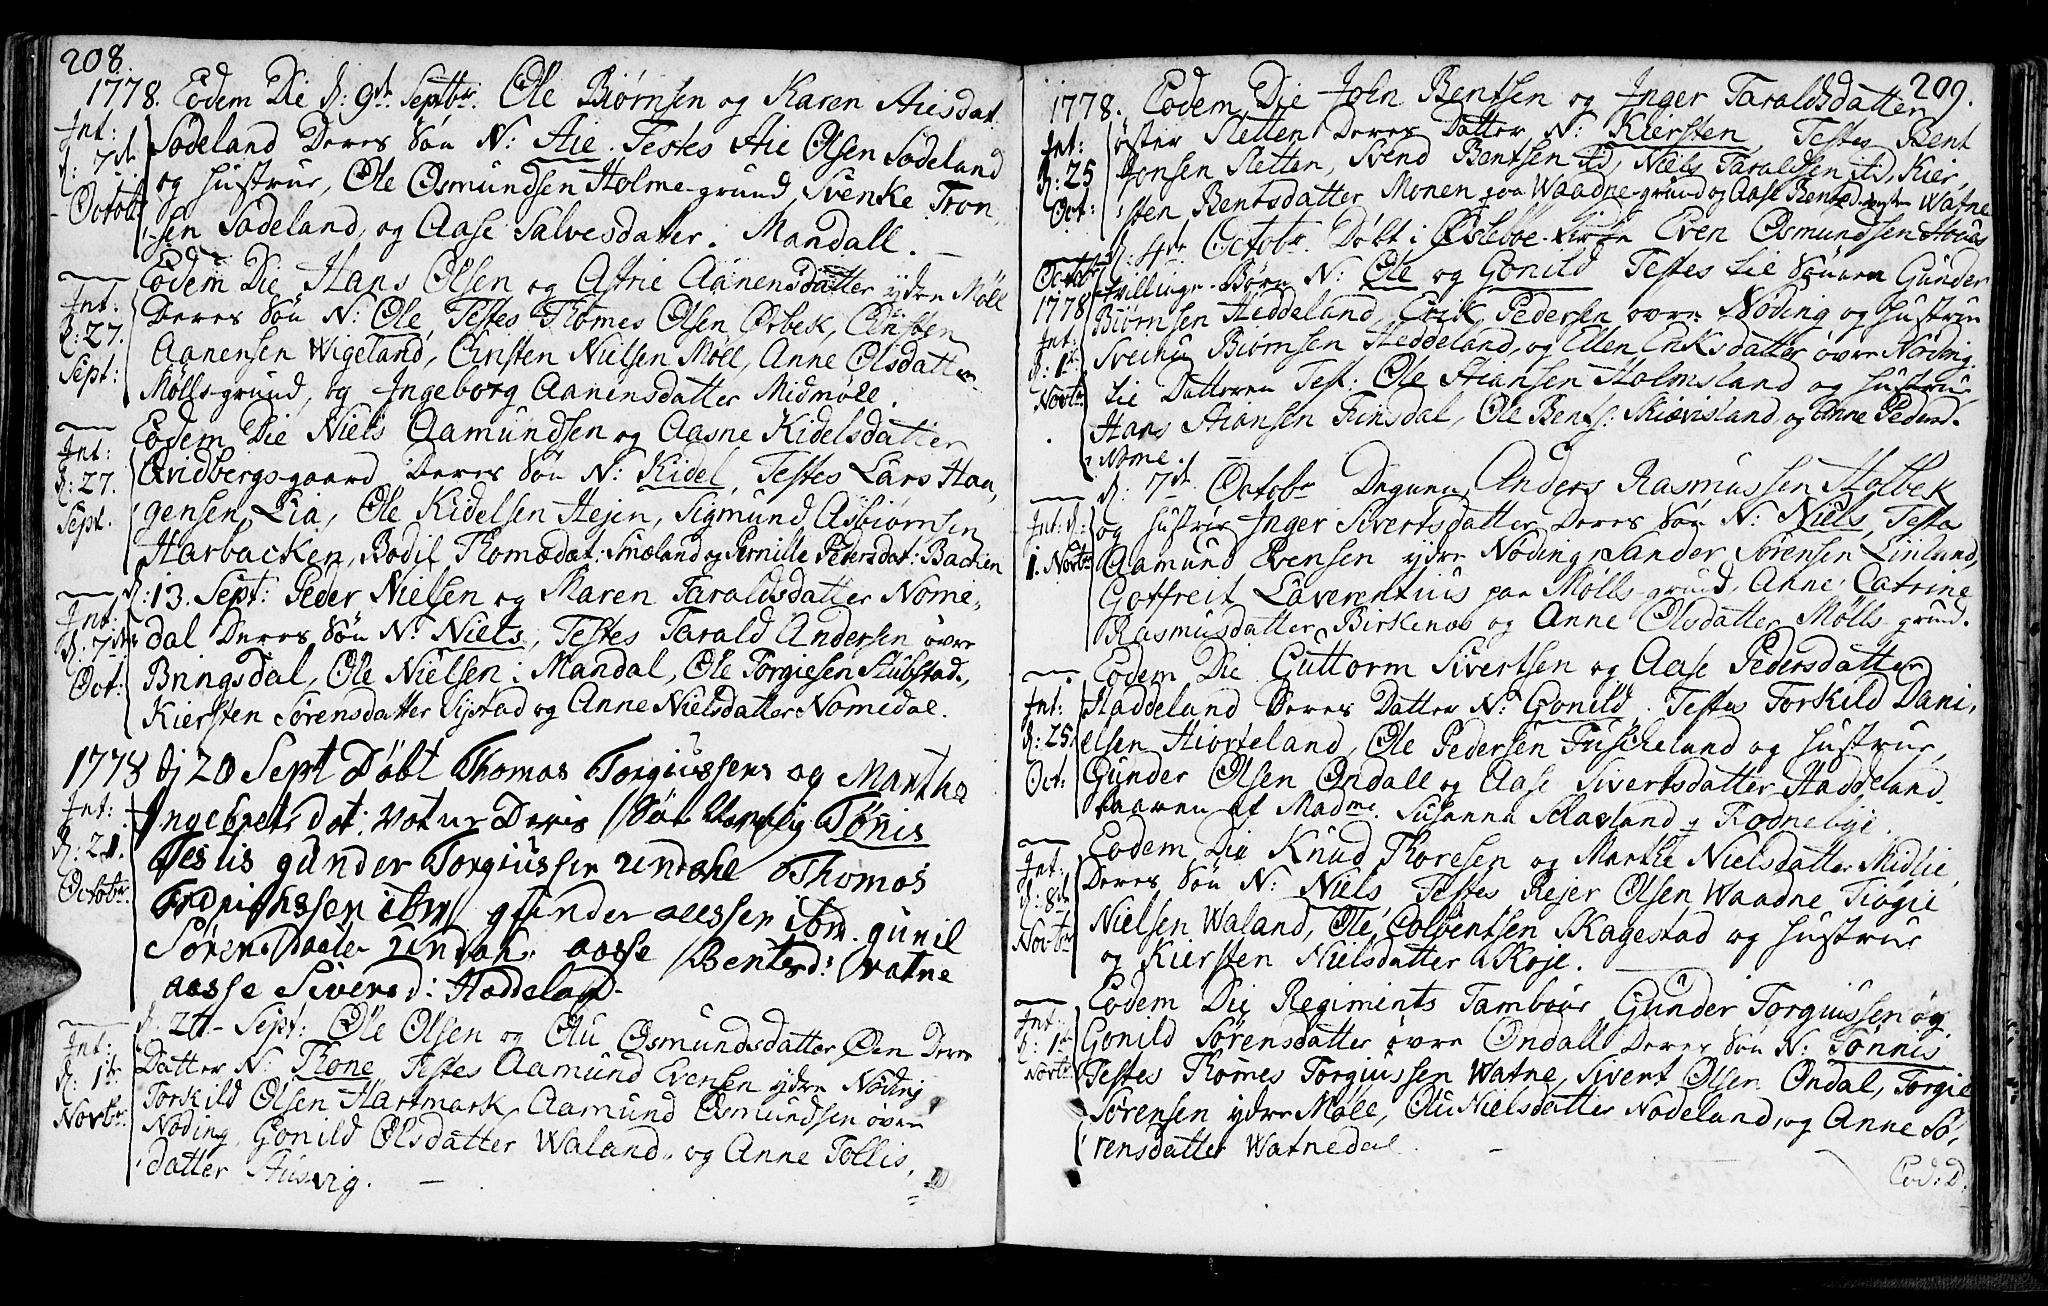 208.
1778. Eodem Die d: 9de Septbr. Ole Biørnsen og Karen Aiesdat.
Int: Sodeland Deres Søn N: Aie. Testes Aie Olsen Sodeland
d: 7de og Hustrue, Ole Osmundsen Holme-grund, Svenke Tron,
Octob: sen Sodeland, og Aase Salvesdatter i Mandall.
Eodem Die Hans Olsen og Astrie Aanensdatter ydre Møll
Int: Deres Søn N: Ole, Testes Thomes Olsen Orbek, Christen
d: 27. Aanensen Wigeland, Christen Nielsen Møll, Anne Olsdatter
Sept: Mølls-grund, og Ingeborg Aanensdatter Midmøll.
Eodem Die Niels Aamundsen og Aasne Kidelsdatter
Int: Andbergs-gaard Deres Søn N: Kidel, Testes Lars Haa,
d: 27. gensen Lia, Ole Kidelsen Hejen, Sigmund Asbiørnsen
Sept. Harbacken, Bodil Thomædat: Smæland og Pernille Pedersdat: Backen
d: 13. Sept: Peder Nielsen og Maren Taraldsdatter Nome,
Int: dal Deres Søn N: Niels, Testes Tarald Andersen øvre
d: 7de Bringsdal, Ole Nielsen i Mandal, Ole Torgiesen Stubstad,
Oct: Kiersten Sørensdatter Sijstad og Anne Nielsdatter Nomedal.
1778 dj 20 Sept Døbt Thomas Torgiussens og Martha
Int: Ingebrets dat: Votne Deris Søn Navnlig Tønis
d: 21. Testis gunder Torgiussen undahl Thomas
Octobr. ibm gunder Aessen ibm. gunil
Sørens daater undah: aasse Bentsd: Vatne
aasse Siversd: Haddeland
d: 27 Sept: Ole Olsen og Olu Osmundsdatter Øen Deres
Int: Datter N: Thone, Testes Aamund Evensen ydre Nøding,
d: 1te Torkild Olsen Hartmark, Aamund Osmundsen øvre
Novbr. Nøding, Gonild Olsdatter Waland, og Anne Tollis,
datter Ausvig.
209.
1778. Eodem Die John Bentsen og Inger Taraldsdatter
Int: øster Sletten Deres Datter N: Kiersten, Testes Bent
d: 25 Jonsen Sletten, Svend Bentsen ibd, Niels Taraldsen ibd, Kier,
Oct: sten Bentsdatter Monen paa Waadne-grund og Aase Bentsdatter Watne
d: 4de Octobr. Døbt i Øsleboe-kirke Even Osmundsen
Octobr tvillinge-Børn N: Ole og Gonild Testes tie Sønnen Gunder
1778 Biørnsen Heddeland, Erik Pedersen øvre Nøding og Hustrue
Int: Sveinu Biørnsen Heddeland, og Ellen Eriksdatter øvre Nøding.
d: 1te tie Datteren Test: Ole Hansen Holmsland og Hustrue,
Novbr Hans Hansen Finsdal, Ole Bents: Skievisland og Anne Pedersd.
Nome.
d: 7de Octobr Degnen Anders Rasmussen Holbek
Int: d: og Hustrue Inger Sivertsdatter Deres Søn N: Niels, Testes
1. Novbr Aamund Evensen ydre Nøding, Sander Sørensen Linlund,
Gotfreit Laverentius paa Mølls-grund, Anne Catrine
Rasmusdatter Birkenæs og Anne Olsdatter Mølls grund.
Eodem Die Guttorm Sivertsen og Aase Pedersdatter
Int: Haddeland Deres Datter N: Gonild. Testes Torkild Dani,
d: 25 elsen Hiorteland, Ole Pedersen Fuskeland og Hustrue,
Oct: Gunder Olsen Ondall og Aase Sivertsdatter Haddeland.
baaren af Madme. Susanna Schavland i Kodnebye.
Eodem Die Knud Thoresen og Marthe Nielsdatter Midlie,
Int: Deres Søn N: Niels, Testes Rejer Olsen Waadne Tiøgie
d: 8de Nielsen Waland, Ole Colbentsen Skagestad og Hustrue
Novbr og Kiersten Nielsdatter Skoje.
Eodem Die Regiments Tambour Gunder Torgiussen og
Int: Gonild Sørensdatter øvre Ondall Deres Søn N: Tønnis
d: 1te Testes Thomes Torgiussen Watne, Sivert Olsen Ondal, Torgie
Novbr Sørensen ydre Møll, Olu Nielsdatter Nodeland, og Anne Sø,
rensdatter Watnedal.
Eod: D.